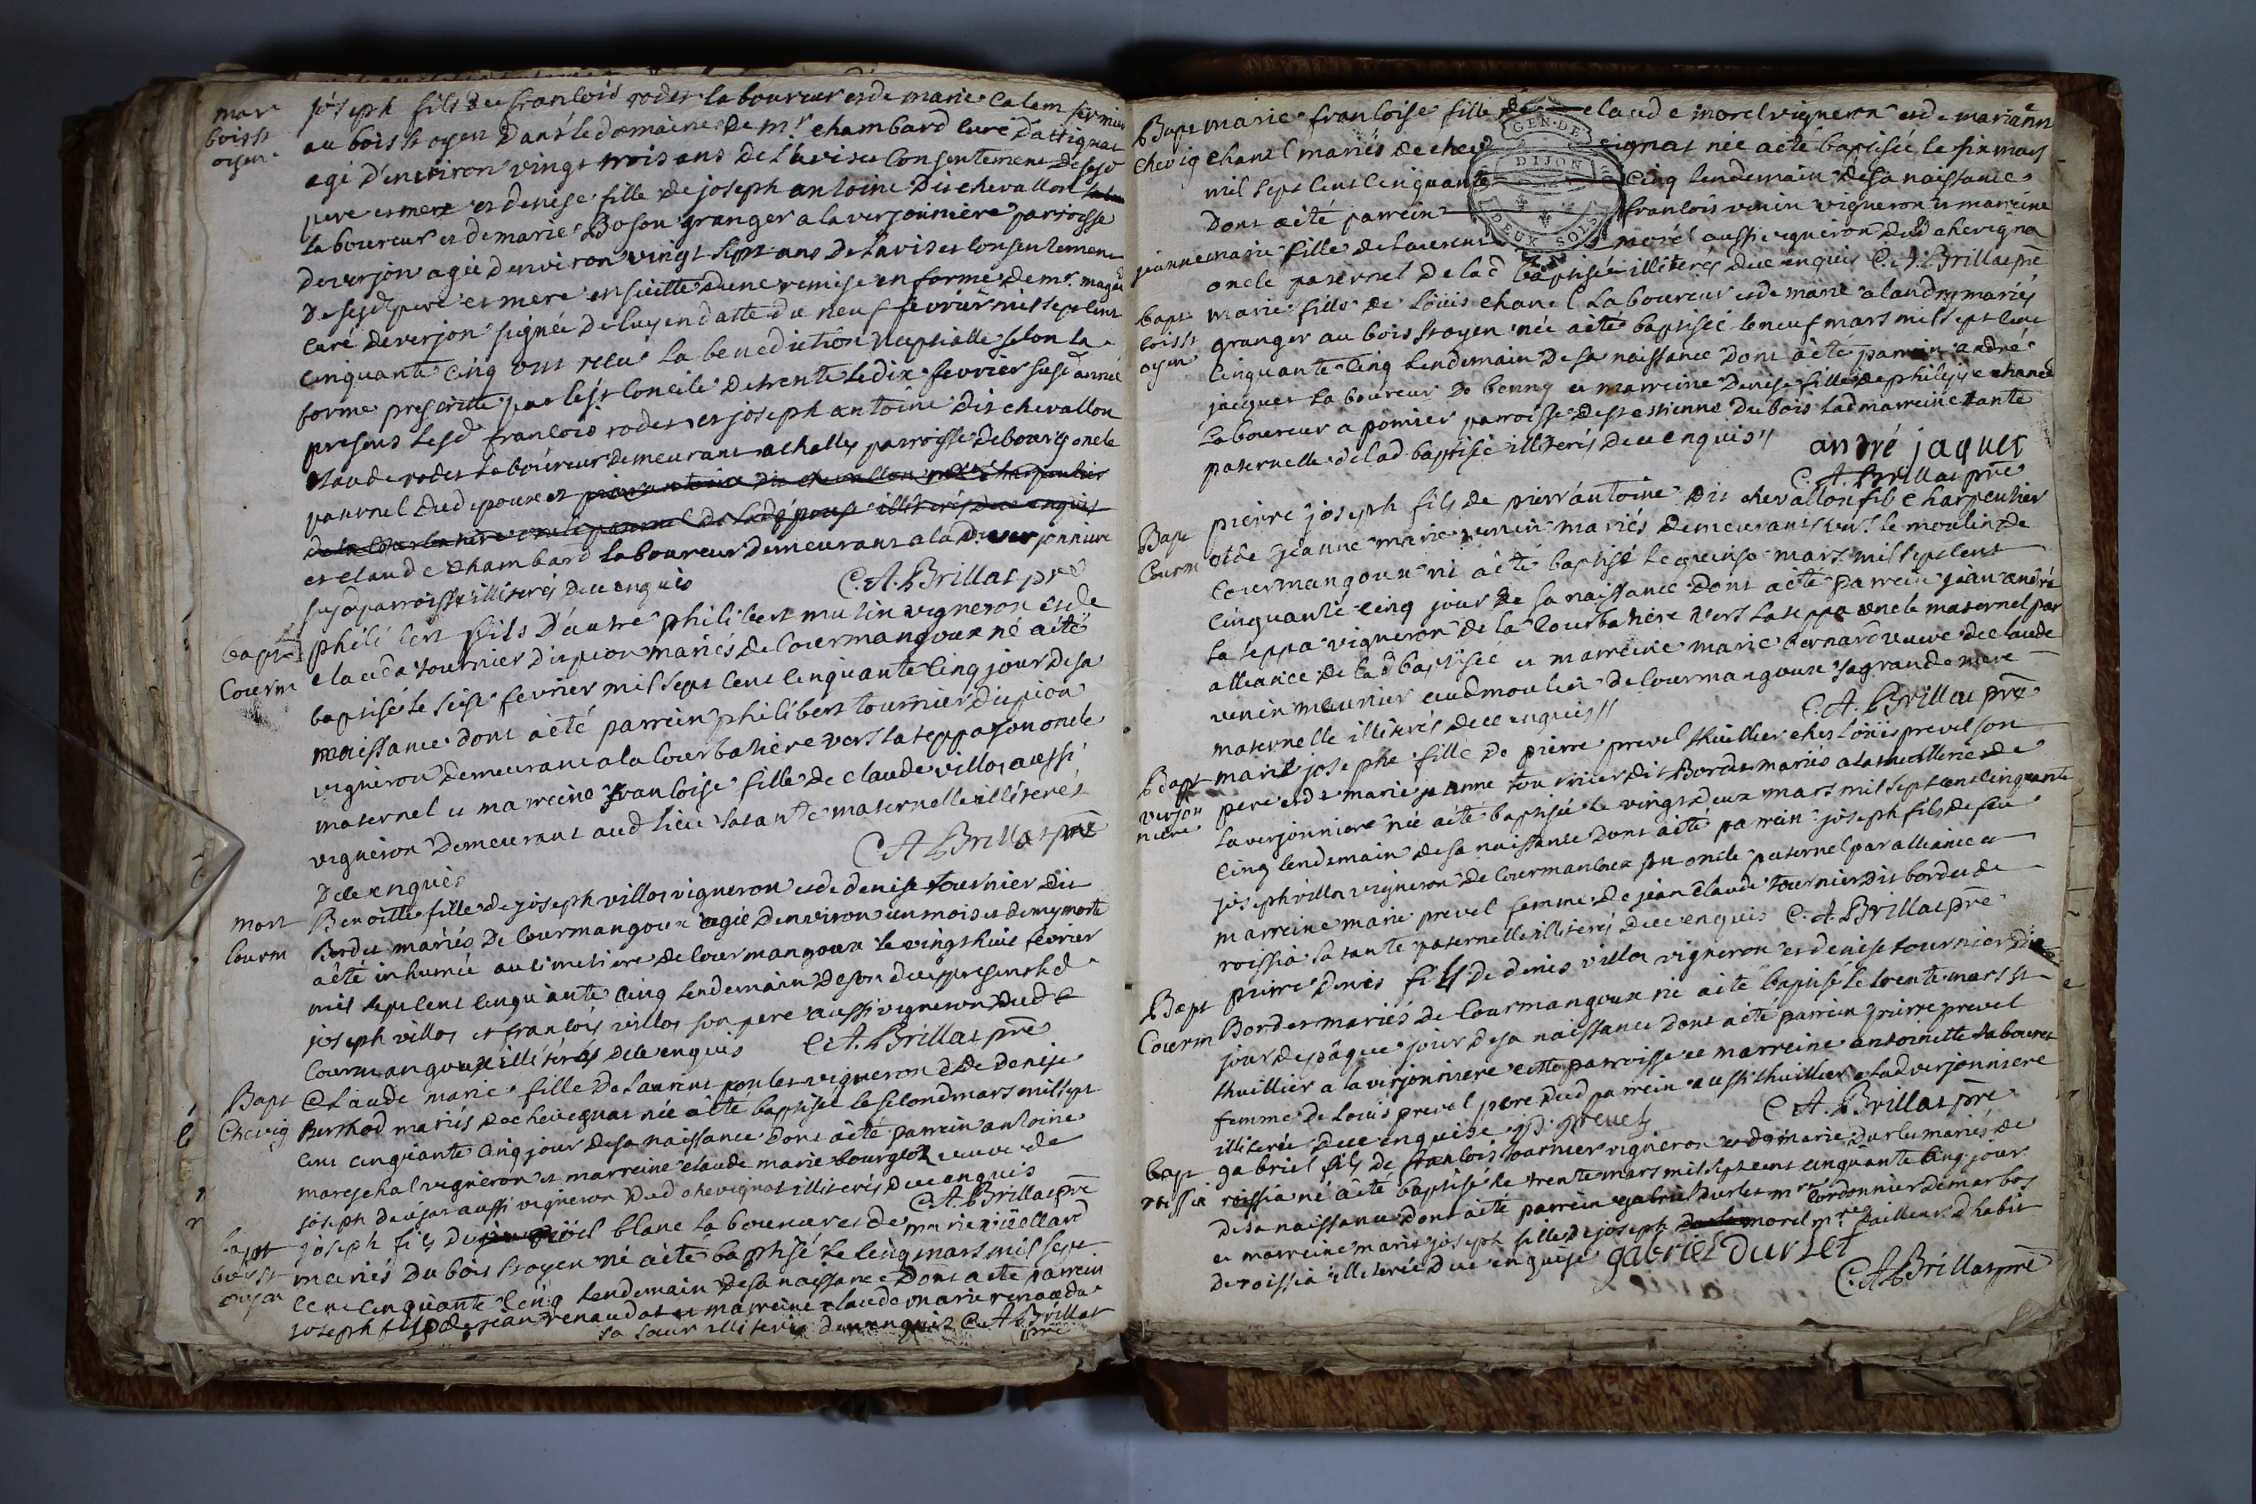 mar
boisst
oyen
joseph fils de françois rodet laboureur et de marie calem fermier
au bois st oyen dans le domaine de mr. chambard curé d'attignat
agé d'environ vingt trois ans de l'avis et consentement de sesd
pere et mere et denise fille de joseph antoine dit chevallon
laboureur et de marie Boson granger a la verjonniere parroisse
de verjon agée d'environ vingt sept ans de l'avis et consentement
de sesd pere et mere ensuitte d'une remise en forme de mr.
curé de verjon signée de luy en datte du neuf fevrier mil sept cent
cinquante cinq ont recu la benediction nuptialle selon la
forme prescritte par le st concile de trente le dix fevrier susd année
presens lesd françois rodet et joseph antoine dit chevallon
claude rodet laboureur demeurant a challes parroisse de bourg oncle
paternel dud epoux et pierre antoine dit chevallon charpentier
de la courbatiere oncle paternel de lad épouse illiterés de ce enquis
et claude chambard laboureur demeurant a lad verjonniere
susd parroisse illiterés de ce enquis C. A. Brillat pre
bapt
Courm
philibert fils d'autre philibert mutin vigneron et de
claude tournier dit pion mariés de Courmangoux né a été
baptisé le seize fevrier mil sept cent cinquante cinq jour de sa
naissance dont a été parrein philibert tournier dit pion
vigneron demeurant a la Courbatiere vers la teppa son oncle
maternel et marreine françoise fille de claude villos aussi
vigneron demeurant aud lieu sa tante maternelle illiterés
de ce enquis C A Brillat pre
mort
Courm
Benoitte fille de joseph villos vigneron et de denise tournier dit
Bordes mariés de Courmangoux agée d'environ un mois et demy morte
a été inhumée au cimetiere de Courmangoux le vingt huit fevrier
mil sept cent cinquante cinq lendemain de son deces presens led
joseph villos et françois villos son pere aussi vigneron dud
Courmangoux illiterés de ce enquis C. A. Brillat pre
Bapt
Chevig
Claude marie fille de Laurent poulet vigneron et de denise
Berthod mariés de chevignat née a été baptisée le second mars mil sept
cent cinquante cinq jour de sa naissance dont a été parrein antoine
marechal vigneron et marreine claude marie veuve de
joseph aussi vigneron dud chevignat illiterés de ce enquis
C. A. Brillat pre
bapt
boisst
oyen
joseph fils de blanc laboureur et de marie
mariés du bois st oyen né a été baptisé le cinq mars mil sept
cent cinquante cinq lendemain de sa naissance dont a été parrein
joseph fils de jean renaud et marreine claude marie renaud
sa sœur illiterés de ce enquis C. A. Brillat
pre
Bapt
Chevig
marie françoise fille de claude morel vigneron et de marianne
chanel mariés de chevignat née a été baptisée le six mars
mil sept cent cinquante cinq lendemain de sa naissance
dont a été parrein françois vinin vigneron et marreine
jeanne marie fille de Laurent morel aussi vigneron dud chevigna
oncle paternel de lad baptisée illiterés de ce enquis C. A. Brillat pre
GEN. DE
DIJON
DEUX SOLS
bapt
boisst
oyen
marie fille de Loüis chanel laboureur et de marie alandry mariés
granger au bois st oyen née a été baptisée le neuf mars mil sept cent
cinquante cinq lendemain de sa naissance dont a été parrein andré
jacquet laboureur de beny et marreine denise fille de philippe chanel
laboureur a pomier parroisse de st estienne du bois lad marreine tante
paternelle de lad baptisée illiterés de ce enquis andré jaquet
C. A. Brillat pre
Bapt
Courm
pierre joseph fils de pierr'antoine dit chevallon fils charpentier
et de jeanne marie venin mariés demeurants vers le moulin de
Courmangoux né a été baptisé le quinze mars mil sept cent
cinquante cinq jour de sa naissance dont a été parrein jean andré
la teppa vigneron de la Courbatiere vers la teppa oncle maternel par
alliance de lad baptisée et marreine marie bernard veuve de claude
venin meunier aud moulin de Courmangoux sa grande mere
maternelle illiterés de ce enquis C. A. Brillat pre
bapt
verjon
niere
marie josephe fille de pierre prevel thuillier chez loüis prevel son
pere et de marie jeanne tournier dit Bordes mariés a la thuillerie de
la verjonniere née a été baptisée le vingt deux mars mil sept cent cinquante
cinq lendemain de sa naissance dont a été parrein joseph fils de feu
joseph villos vigneron de Courmangoux son oncle paternel par alliance et
marreine marie prevel femme de jean claude tournier dit bordes de
roissia sa tante paternelle illiterés de ce enquis C. A. Brillat pre
Bapt
Courm
pierre denis fils de denis villos vigneron et denise tournier dit
Bordes mariés de Courmangoux né a été baptisé le trente mars st
jour de pâque jour de sa naissance dont a été parrein pierre prevel
thuillier a la verjonniere cette parroisse et marreine antoinette labouret
femme de Loüis prevel pere dud parrein aussi thuillier a lad verjonniere
illiterée de ce enquise p. prevel C A Brillat pre
bapt
roissia
gabriel fils de françois tournier vigneron et de marie durlet mariés de
roissia né a été baptisé le trente mars mil sept cent cinquante cinq jour
de sa naissance dont a été parrein gabriel durlet mre cordonnier de marboz
et marreine marie joseph fille de joseph morel mre tailleur d'habit
de roissia illiterée de ce enquise gabriel durlet
C. A. Brillat pre